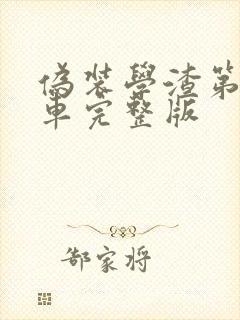 偽装學渣第
車完整版
郜家将